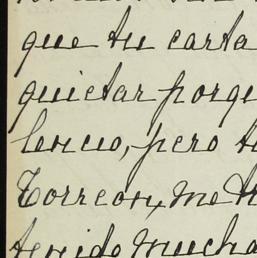 que tu carta
quietar porq
lencio, pero t
Torreon, me h
tenido mucha